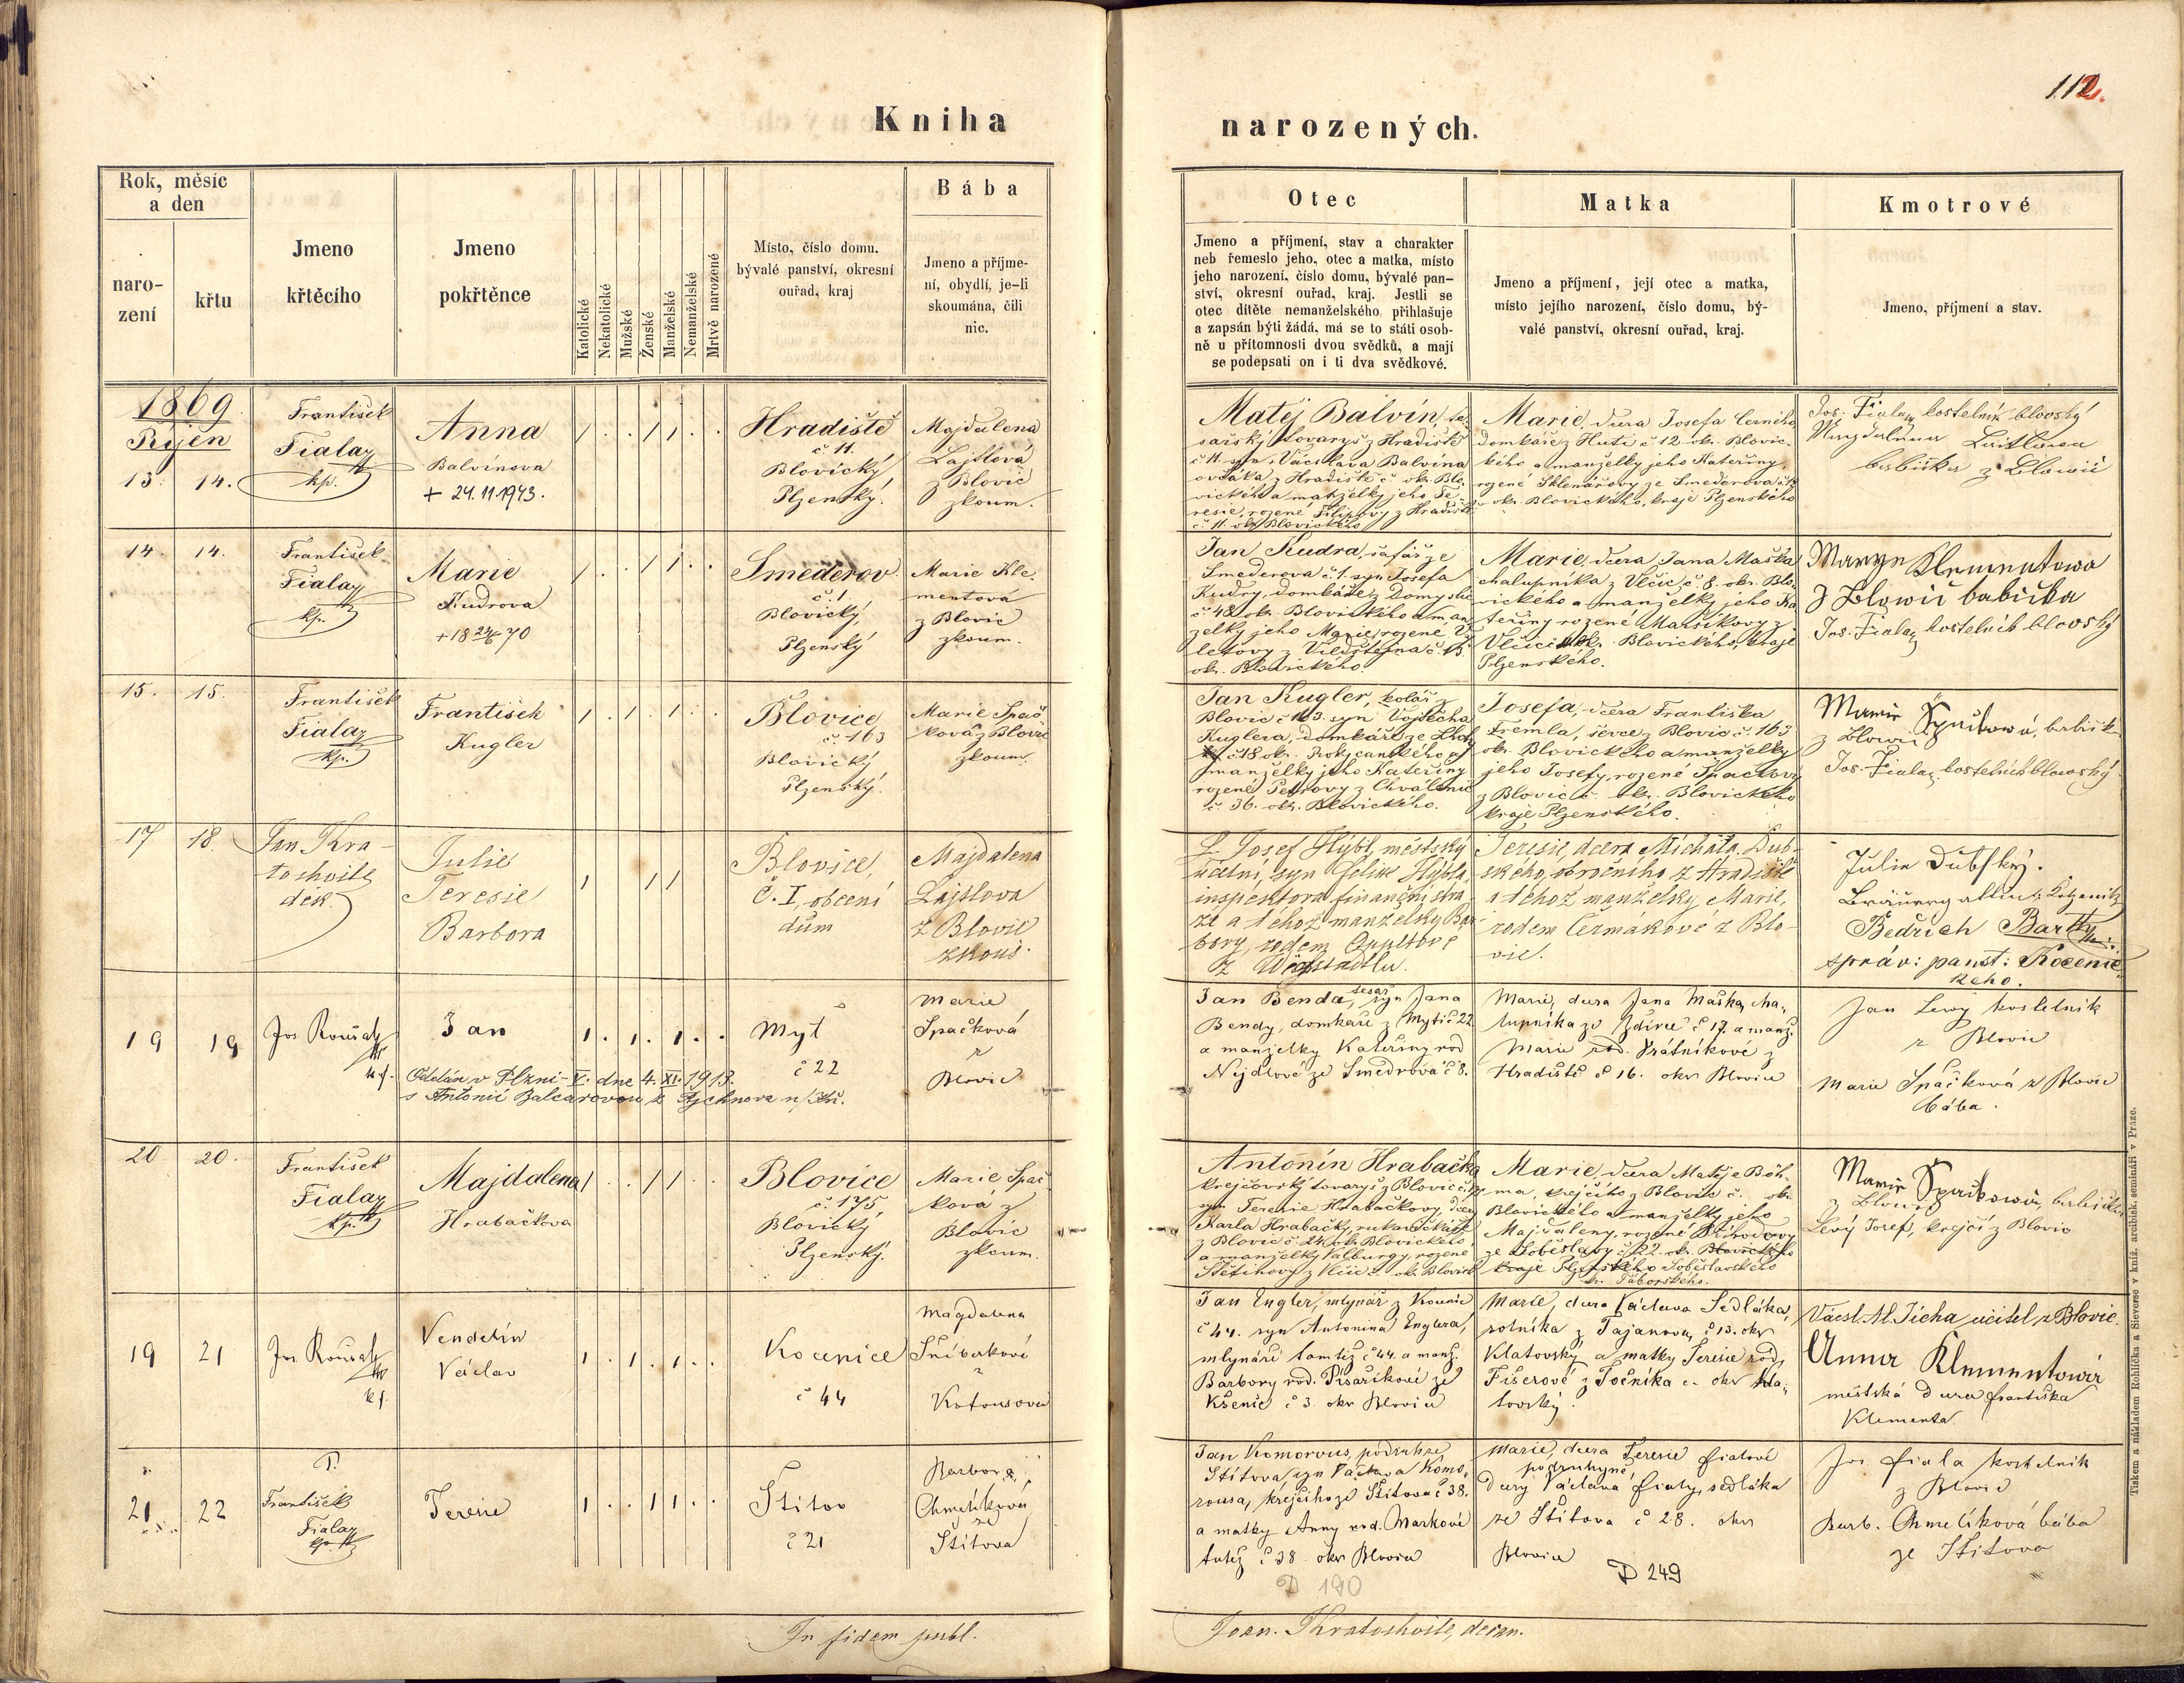 112.
Kniha
narozených.
Rok, měsíc
a den
naro-
zení
křtu
Jmeno
křtěcího
Jmeno
pokřtěnce
Katolické
Nekatolické
Mužské
Ženské
Manželské
Nemanželské
Mrtvě narozené
Místo, číslo domu.
bývalé panství, okresní
ouřad, kraj
Bába
Jmeno a příjme-
ní, obydlí, je-li
skoumána, čili
nic.
Otec
Jmeno a příjmení, stav a charakter
neb řemeslo jeho, otec a matka, místo
jeho narození, číslo domu, bývalé pan-
ství, okresní ouřad, kraj. Jestli se
otec dítěte nemanželského přihlašuje
a zapsán býti žádá, má se to státi osob-
ně u přítomnosti dvou svědků, a mají
se podepsati on i ti dva svědkové.
Matka
Jmeno a příjmení, její otec a matka,
místo jejího narození, číslo domu, bý-
valé panství, okresní ouřad, kraj.
Kmotrové
Jmeno, příjmení a stav.
1869
Říjen
13. 14.
František
Fiala
kp.
Anna
Balvínova
+ 24.11.1943.
Hradiště
č 11.
Blovický
Plzenský.
Majdalena
Lajtlová
z Blovic
zkoum.
Matěj Balvín, te-
sařský tovaryš z Hradiště
č 11. syn Václava Balvína
ovčáka z Hradiště č okr. Blo-
vického a manželky jeho Te-
resie, rozené Filipovy z Hradiště
č 11. okr. Blovického
Marie, dcera Josefa Černého
domkáře z Hutě č 12. okr. Blovic-
kého a manželky jeho Kateřiny,
rozené Sklenářovy ze Smederova č
okr. Blovického, kraje Plzenského
Jos. Fiala kostelník blovský
Magdalena
babička z Blowic
14. 14.
František
Fiala
kp.
Marie
Kudrova
+ 18 24/6 70
Smederov
č. 1.
Blovický,
Plzenský
Marie Kle-
mentová
z Blovic
zkoum.
Jan Kudra, šafář ze
Smederova č. 1. syn Josefa
Kudry, domkáře z Domyslic
č 48 okr. Blovického a man-
želky jeho Marie, rozené
okr. Blovického
Marie, dcera Jana Maška
chalupníka z Vlčic, č. 8. okr. Blo-
vického a manželky jeho Ka-
teřiny rozené Maršíkovy z
Vlčic okr. Blovického, kraje
Plzenského.
Marye Klementowa
z Blowic babička
Jos. Fiala kostelník blovský
15. 15.
František
Fiala
kp.
František
Kugler
Blovice
č. 163
Blovický
Plzenský.
Marie Špač-
ková z Blovic
zkoum.
Jan Kugler, kolář z
Blovic č 163. syn Vojtěcha
Kuglera, domkáře ze
č 18 okr. Rokycanského a
manželky jeho Kateřiny
rozené Petrovy z Chválenic
č 36. okr. Blovického.
Josefa, dcera Františka
Tremla, ševce z Blovic č. 163
okr. Blovického a manželky
jeho Josefy, rozené Špačkovy
z Blovic č okr. Blovického
kraje Plzenského.
Marie Špačkowá, babička
z Blowic
Jos. Fiala, kostelník blowský
17 18
Jan Kra-
tochvile
děk.
Julie
Teresie
Barbora
Blovice,
Č. I, obecní
dům
Majdalena
Lajtlova
z Blovic
zkouš.
P. Josef Hýbl, městský
účetní, syn Felixe Hýbla
inspektora finanční strá-
že a téhož manželky Bar-
bory, rodem
z
Teresie, dcera Michala Dub-
ského, obročního z Hradiště
a téhož manželky Marie,
rodem Čermákové z Blo-
vic.
Julie Dubský.
Bedřich
správ: panst: Kocenic-
kého.
19 19
Jos Roušal
kp.
Jan
Oddán v Plzni-V. dne 4. XI. 1913.
s Antonií Balcarovou z Rychnova n/Kn.
Myť
č 22
Marie
Špačková
z
Blovic
Jan Benda, tesař, syn Jana
Bendy, domkáře z Mytí č 22
a manželky Kateřiny rod
Nejdlové ze Smedrova č 8.
Marie, dcera Jana Maška, cha-
lupníka ze Ždírce č 17. a manž.
Marie rod. Vrátníkové z
Hradiště č 16. okr Blovice
Jan Levý kostelník
z Blovic
Marie Špačková z Blovic
bába.
20 20.
František
Fiala
kp.
Majdalena
Hrabačkova
Blovice
č. 175,
Blovický
Plzenský.
Marie Špač-
ková z
Blovic
zkoum.
Antonín Hrabačka
krejčovský tovaryš z Blovic č.
syn Teresie Hrabačkovy, dcery
Karla Hrabačky, rukavičkáře
z Blovic č. 24 okr. Blovického,
a manželky Valburgy, rozené
Štětinovy z Vlčic č. okr. Blovic.
Marie, dcera Matěje Böh-
ma, krejčího z Blovic č. okr.
Blovického a manželky jeho
Majdaleny, rozené
ze Soběslavy č. 22. okr. Blovického
kraje Plzenského Soběslavského
kr. Táborského.
Marie Špačkowá, babička
z Blowic
Levý Josef, krejčí z Blovic
19 21
Jos Roušal
kp.
Vendelín
Václav
Kocenice
č 44
Magdalena
Šnýberkové
z
Kotousova
Jan Engler, mlynář z Kocenic
č 44. syn Antonína Englera,
mlynáře tamtéž č 44. a manž.
Barbory rod. Písaříkové ze
Kšenic č 3. okr Blovice
Marie, dcera Václava Sedláka,
rolníka z Tajanova, č 13. okr
Klatovský a matky Teresie rod.
Fišerové z Točníka č. okr Kla-
tovský.
Václ. Al. Jícha učitel z Blovic.
Anna Klementowá
městská dcera Františka
Klementa
21 22
P.
František
Fiala
kp.
Teresie
Štítov
č 21
Barbora
Chmelíková
ze
Štítova
Jan Komorous, podruh ze
Štítova, syn Václava Komo-
rousa, krejčího ze Štítova č 38.
a matky Anny rod. Markové
tutéž č 38. okr Blovice
Marie, dcera Teresie Fialové
podruhyně,
dcery Václava Fialy, sedláka
ze Štítova č 28. okr
Blovice
Jos Fiala kostelník
z Blovic
Barb. Chmelíková bába
ze Štítova
D 190
D 249
In fidem publ.
Joan. Kratochvile, decan.
Tiskem a nákladem Rohlíčka a Sieverse v kníž. arcibisk. semináři v Praze.